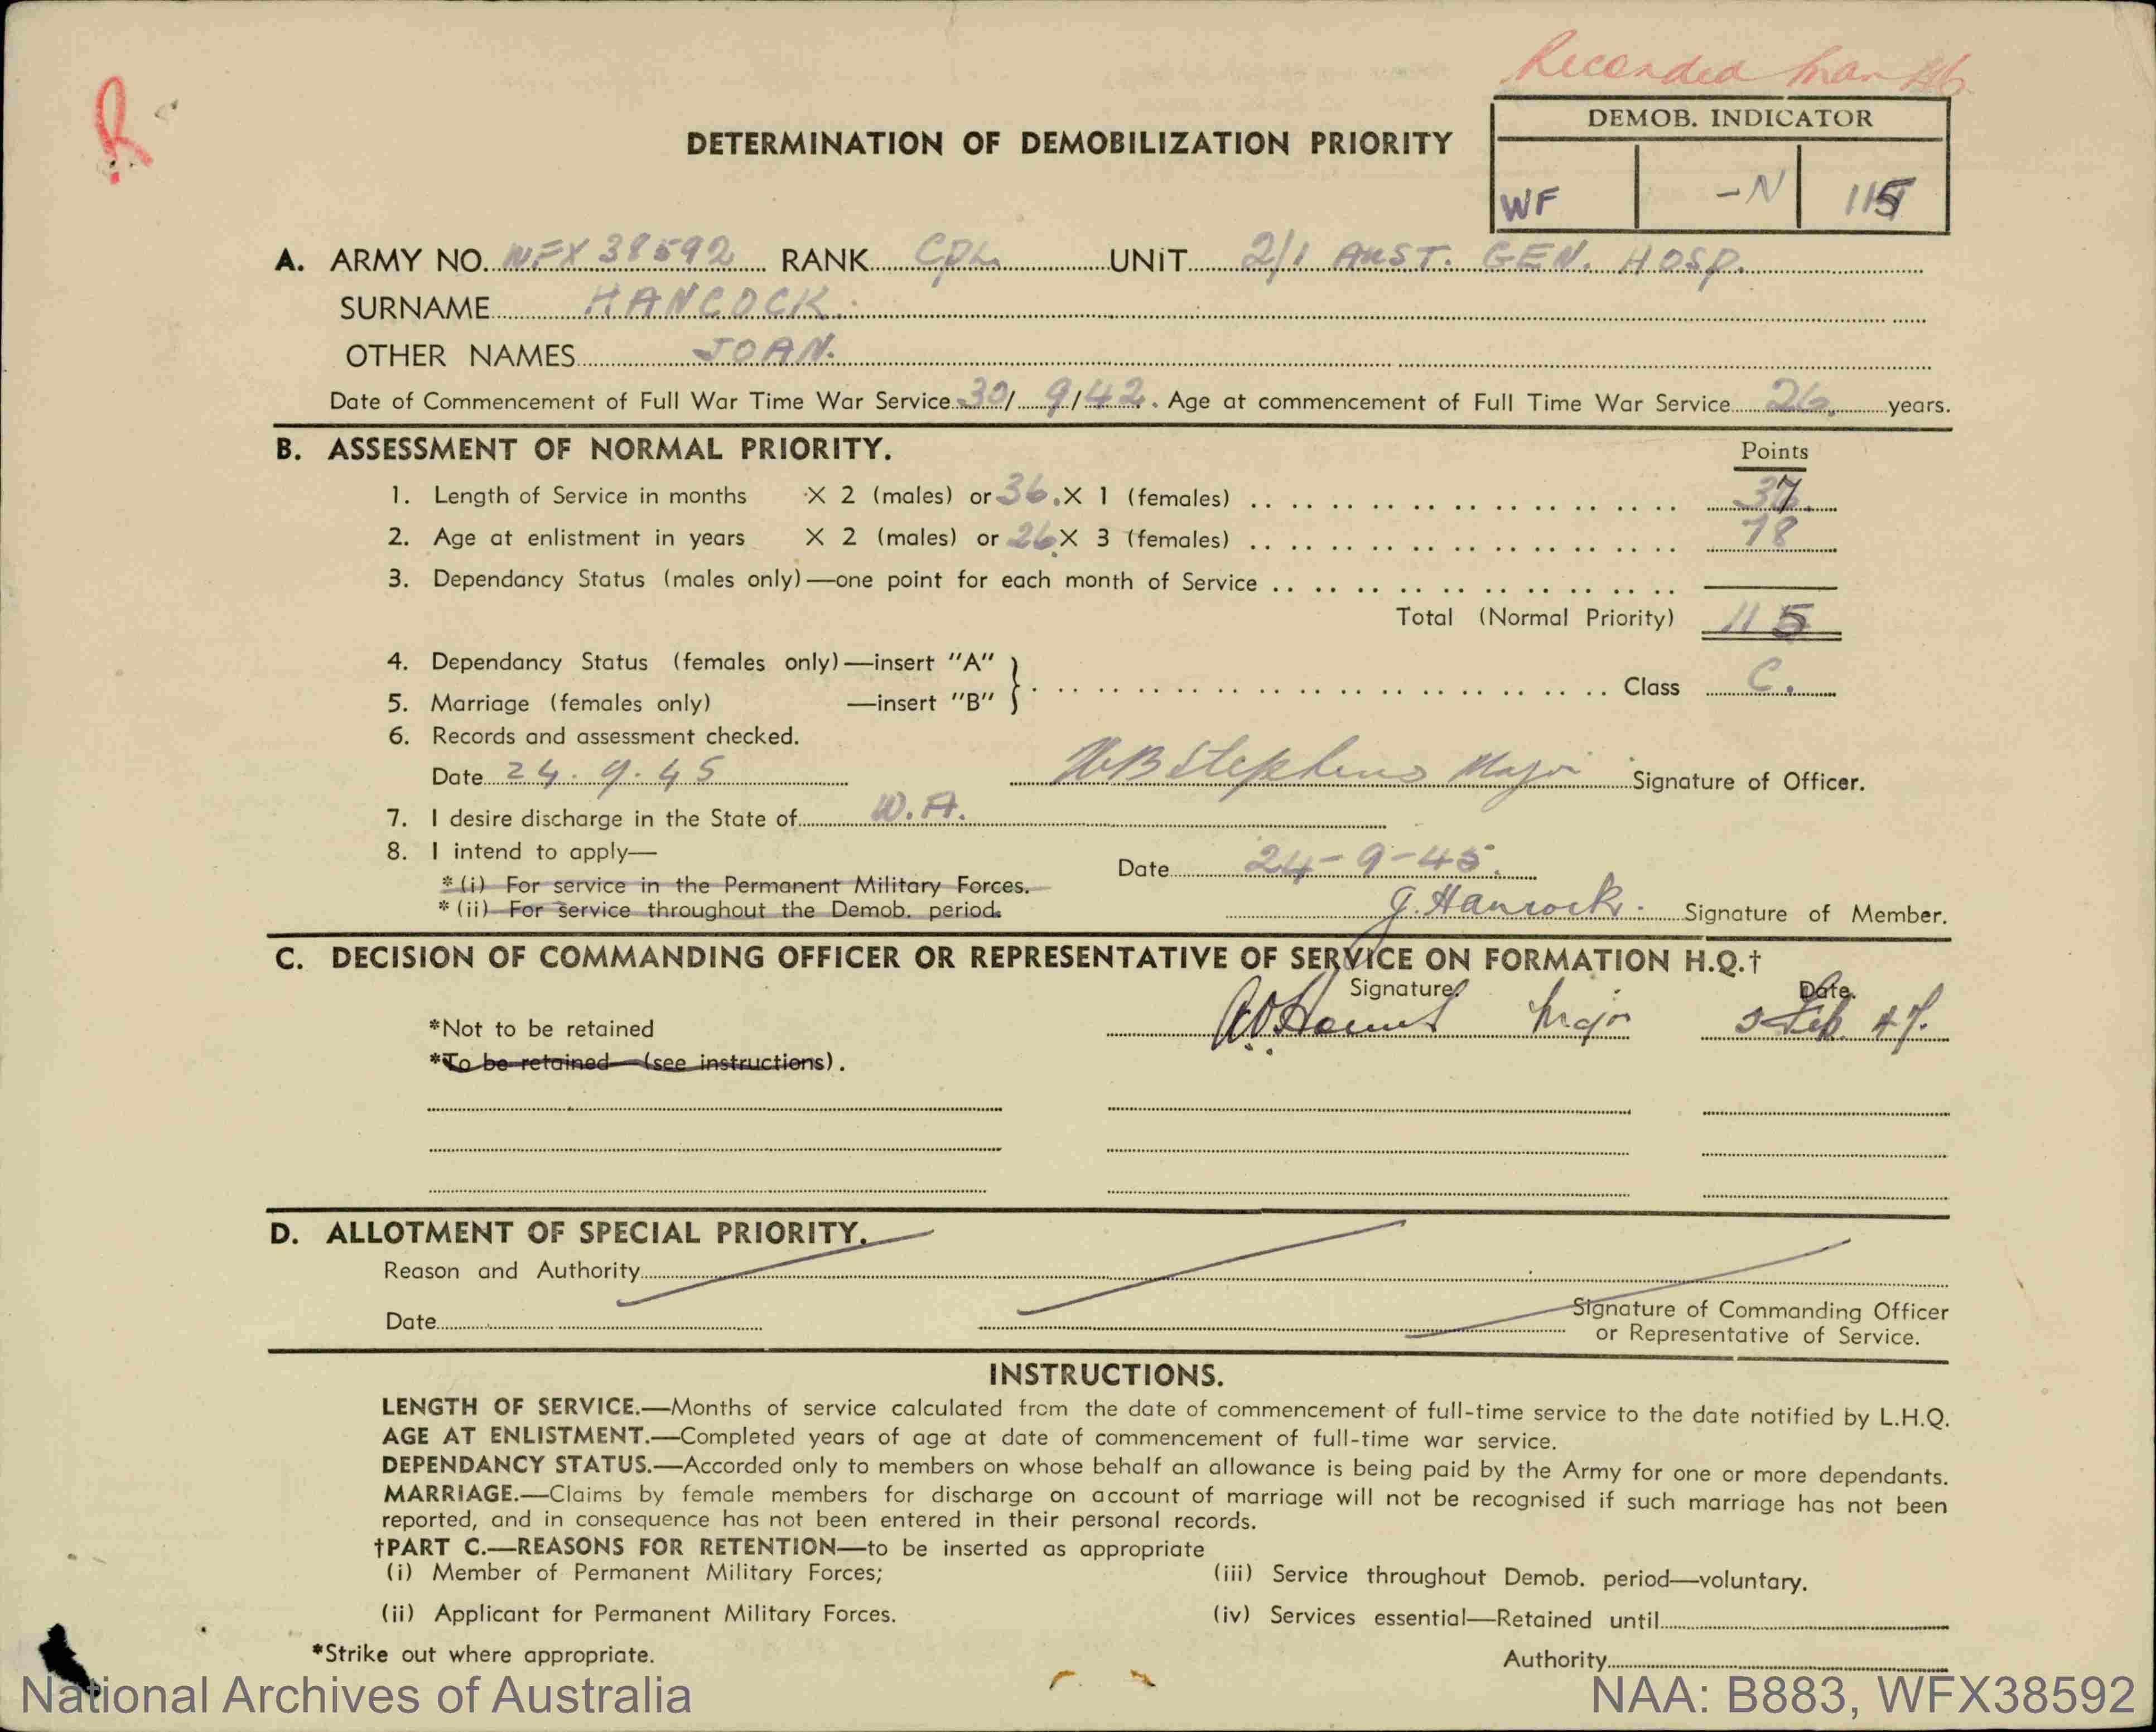 Recorded Mar 46
DEMOB. INDICATOR
DETERMINATION OF DEMOBILIZATION PRIORITY
WF -N 115
A. ARMY NO. WFX 38592 RANK CPL UNIT 2/1 AUST. GEN. HOSP.
SURNAME HANCOCK.
OTHER NAMES JOAN.
Date of Commencement of Full War Time War Service 30/ 9/42. Age at commencement of Full Time War Service 26 years.
B. ASSESSMENT OF NORMAL PRIORITY.
Points
1. Length of Service in months X 2 (males) or 36. X 1 (females) 37
2. Age at enlistment in years X 2 (males) or 26 X 3 (females) 78
3. Dependancy Status (males only)—one point for each month of Service
Total (Normal Priority) 115
4. Dependancy Status (females only)—insert "A"
5. Marriage (females only) —insert "B" Class C.
6. Records and assessment checked.
Date 24.9.45 Stephens Major Signature of Officer.
7. I desire discharge in the State of W.A.
8. I intend to apply—
Date 24-9-45.
*(i) For service in the Permanent Military Forces.
*(ii) For service throughout the Demob. period.
J. Hancock. Signature of Member.
C. DECISION OF COMMANDING OFFICER OR REPRESENTATIVE OF SERVICE ON FORMATION H.Q.†
Signature. Date.
*Not to be retained Major Feb. 47.
*To be retained—(see instructions).
D. ALLOTMENT OF SPECIAL PRIORITY.
Reason and Authority
Date
Signature of Commanding Officer
or Representative of Service.
INSTRUCTIONS.
LENGTH OF SERVICE.—Months of service calculated from the date of commencement of full-time service to the date notified by L.H.Q.
AGE AT ENLISTMENT.—Completed years of age at date of commencement of full-time war service.
DEPENDANCY STATUS.—Accorded only to members on whose behalf an allowance is being paid by the Army for one or more dependants.
MARRIAGE.—Claims by female members for discharge on account of marriage will not be recognised if such marriage has not been
reported, and in consequence has not been entered in their personal records.
†PART C.—REASONS FOR RETENTION—to be inserted as appropriate
(i) Member of Permanent Military Forces; (iii) Service throughout Demob. period—voluntary.
(ii) Applicant for Permanent Military Forces. (iv) Services essential—Retained until
*Strike out where appropriate. Authority
National Archives of Australia NAA: B883, WFX38592